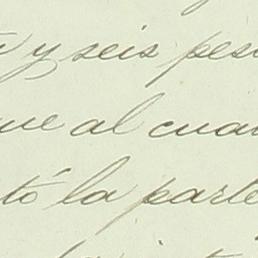 y seis pes
ue al cuan
tó la parte